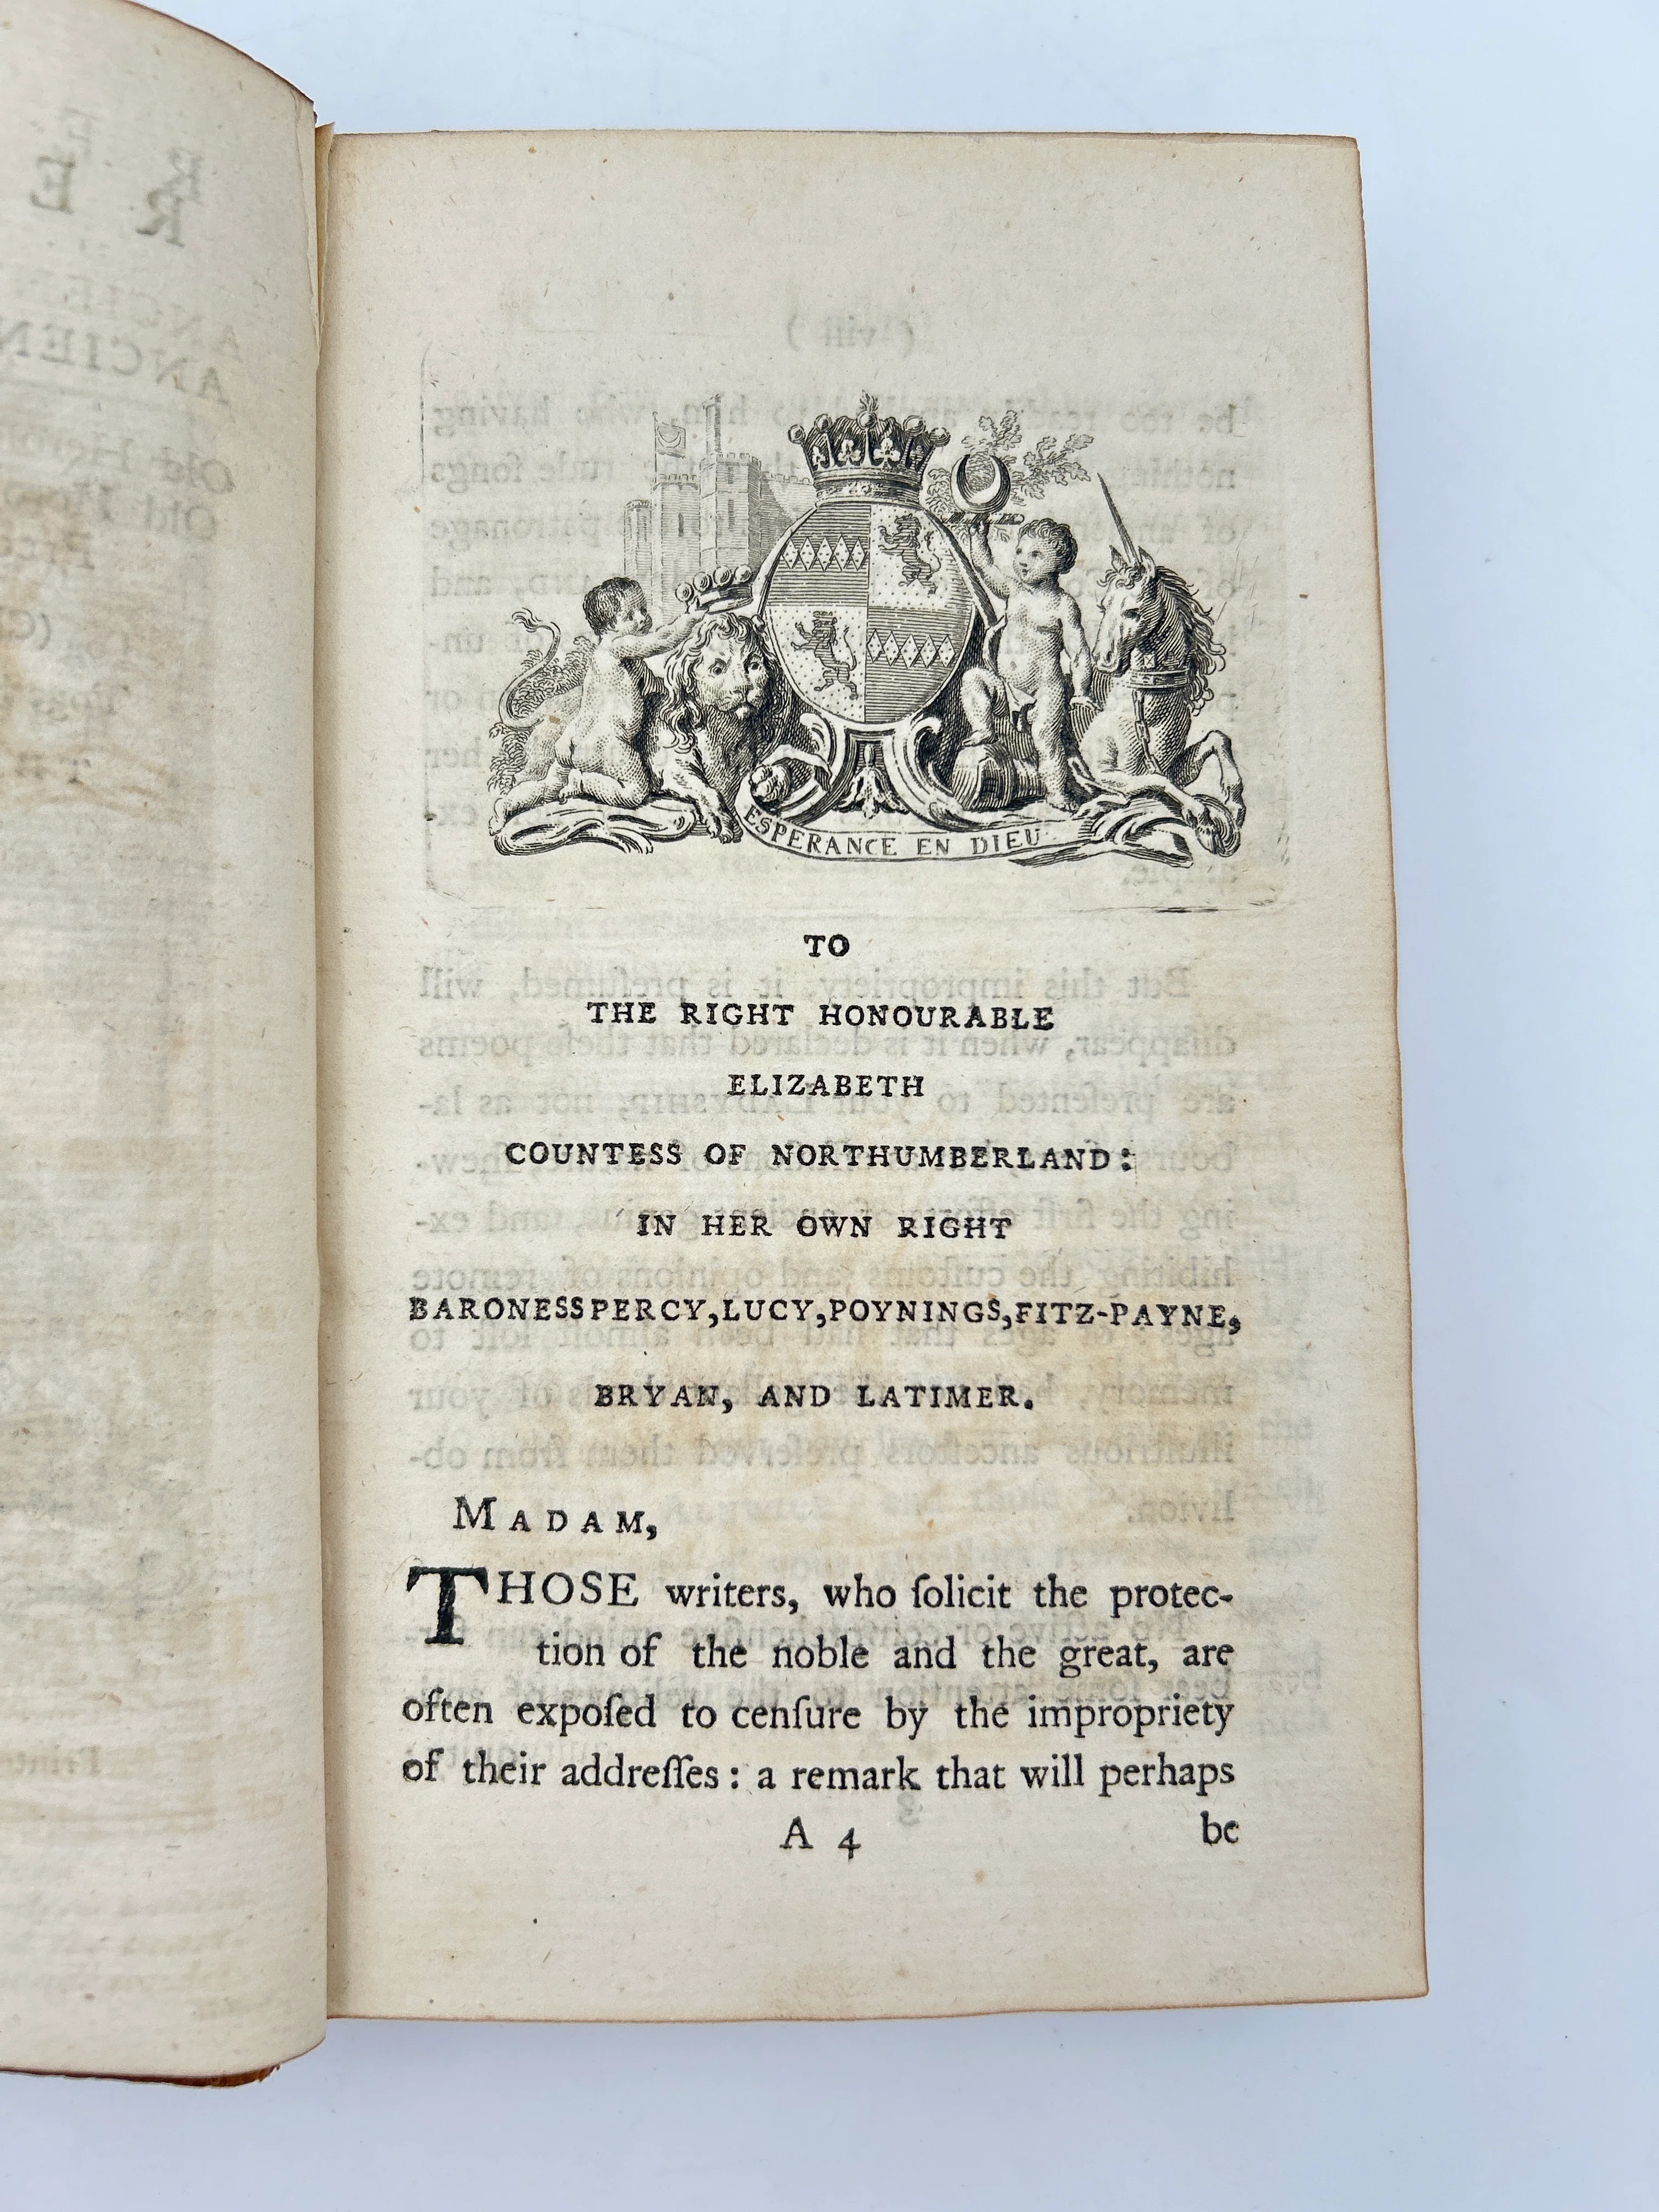 ESPERANCE EN DIEU
TO
THE RIGHT HONOURABLE
ELIZABETH
COUNTESS OF NORTHUMBERLAND:
IN HER OWN RIGHT
BARONESS PERCY, LUCY, POYNINGS, FITZ-PAYNE,
BRYAN, AND LATIMER.
MADAM,
THOSE writers, who ſolicit the protec-
tion of the noble and the great, are
often expoſed to cenſure by the impropriety
of their addreſſes: a remark that will perhaps
A 4 be